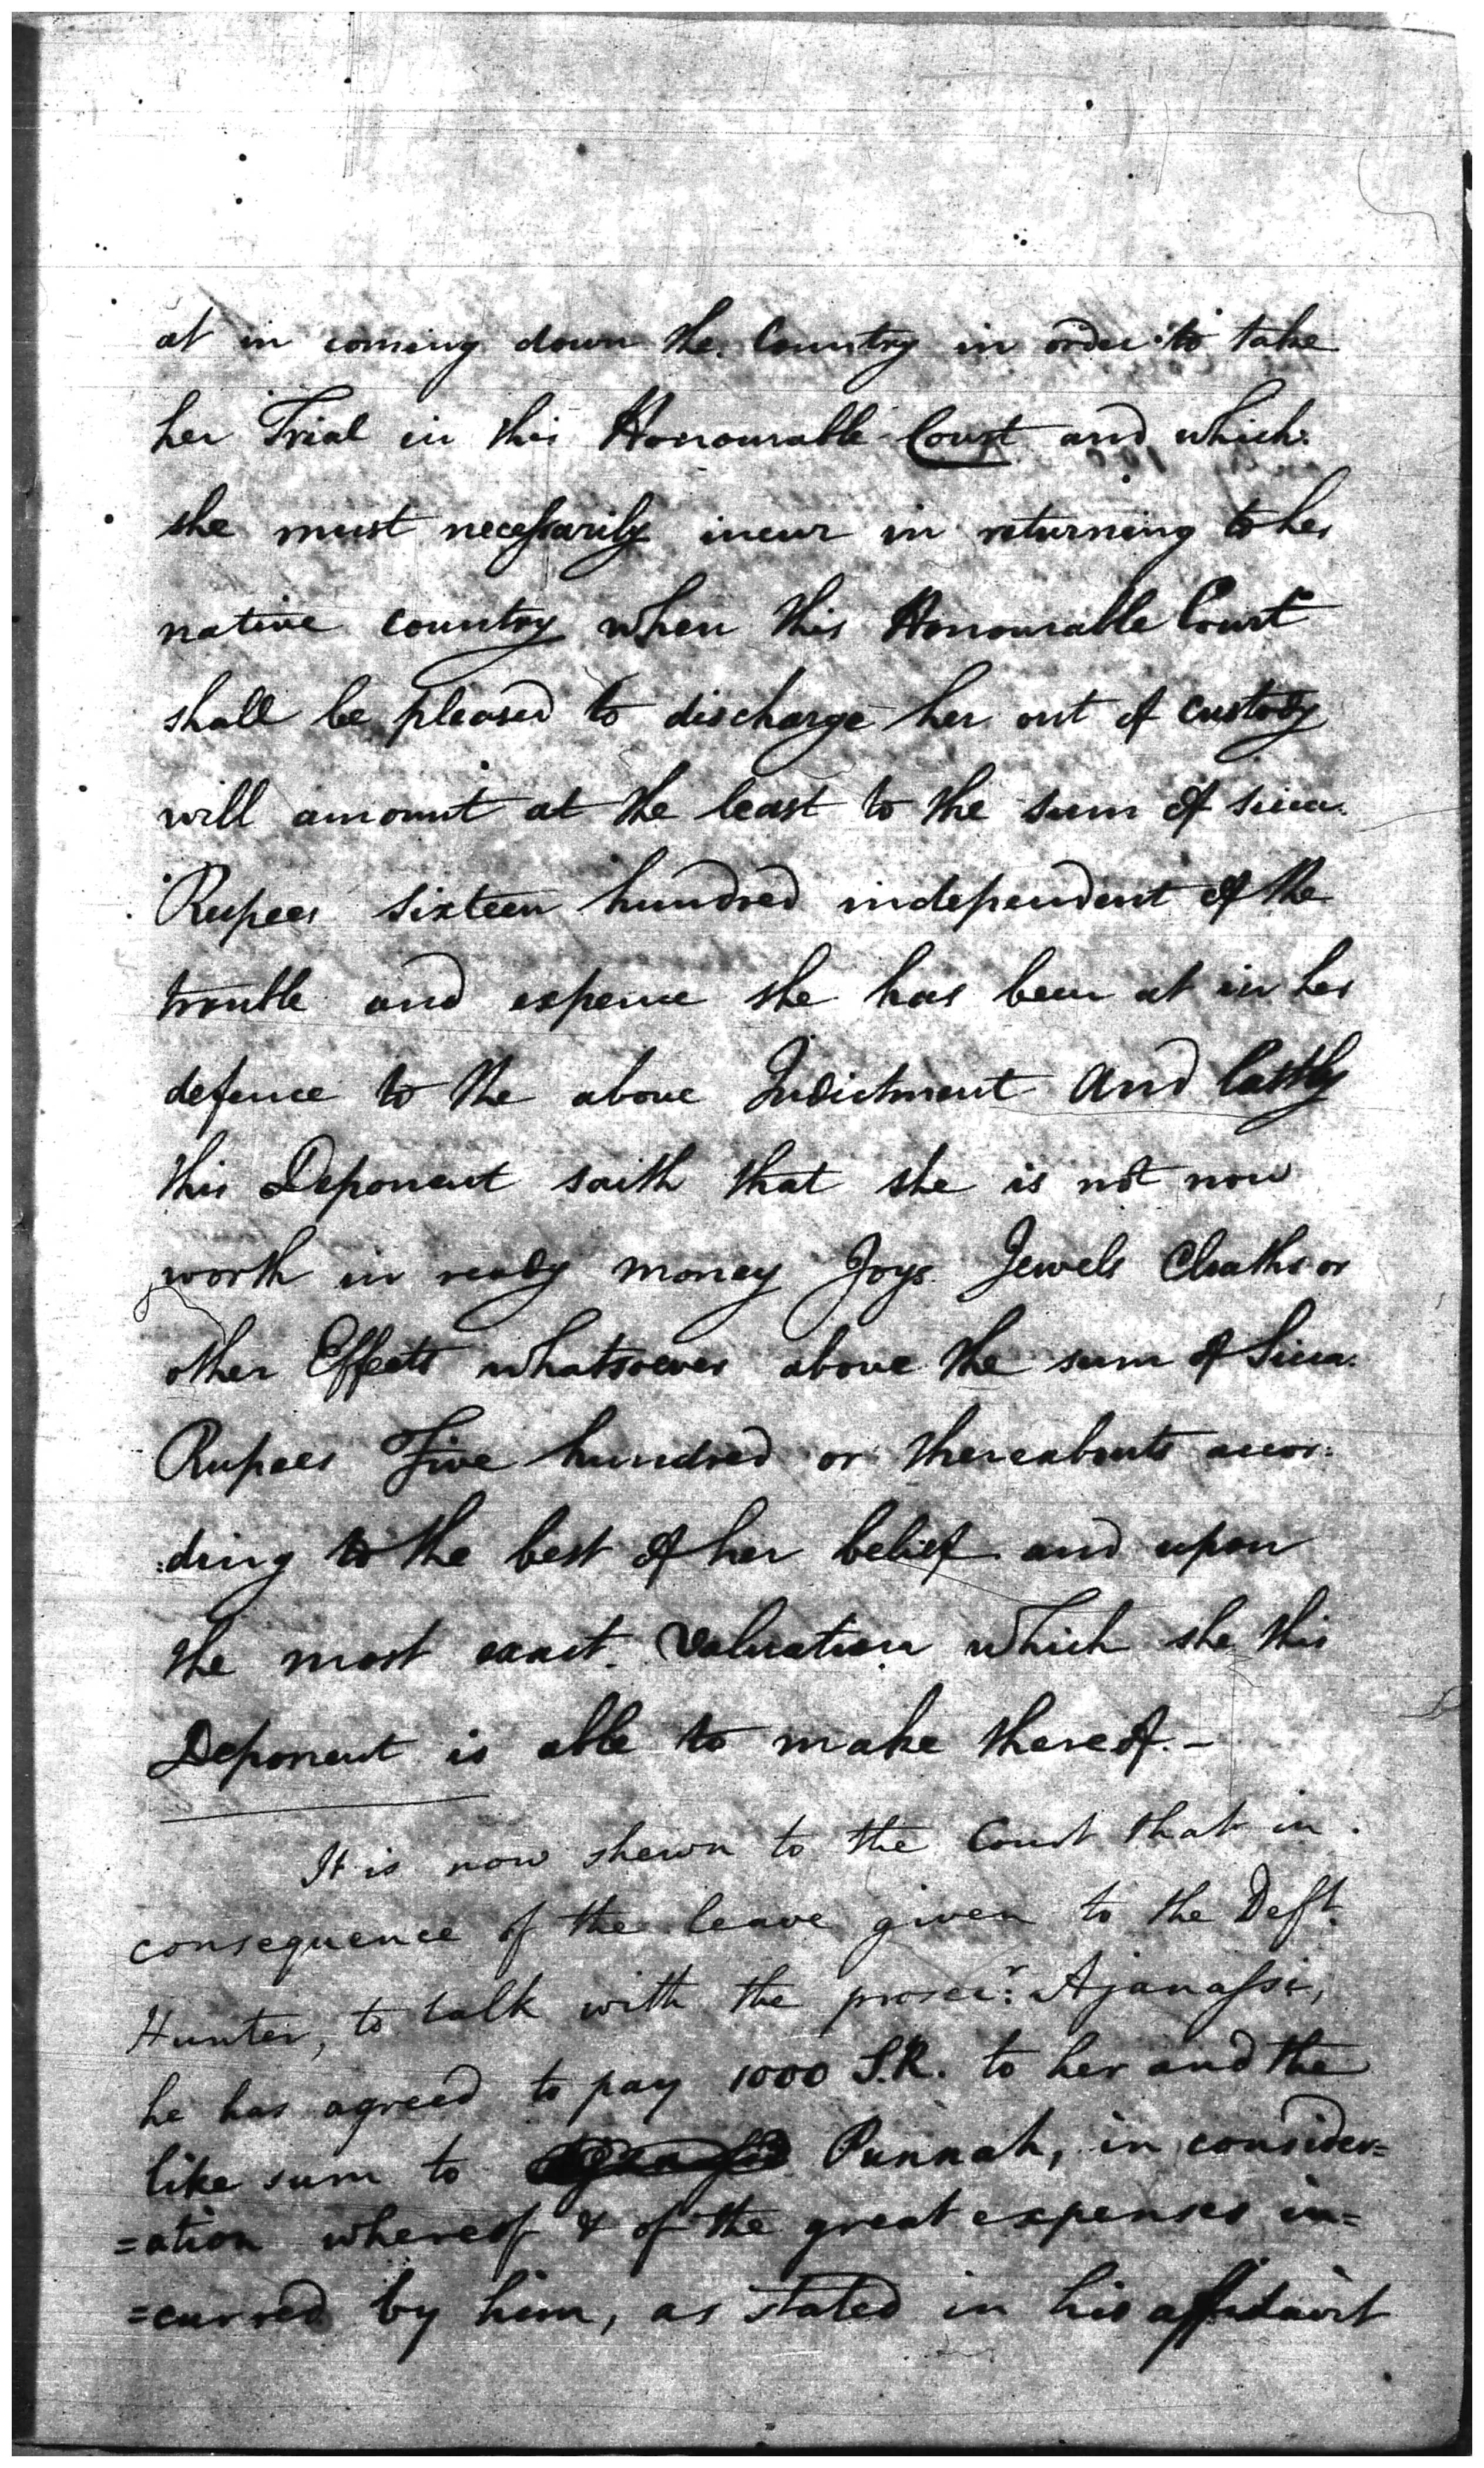 at in coming down the Country in order to take
her Trial in this Honourable Court and which
she must necessarily incur in returning to her
native country when this Honourable Court
shall be pleased to discharge her out of custody
will amount at the least to the sum of sicca
Rupees sixteen hundred independent of the
trouble and expence she has been at in her
defence to the above Indictment And lastly
this Deponent saith that she is not now
worth in ready money Joys Jewels Cloaths or
other Effects whatsoever above the sum of Sicca
Rupees Five hundred or thereabouts accor:
:ding to the best of her belief and upon
the most exact Valuation which she this
Deponent is able to make thereof.-
It is now shewn to the Court that in
consequence of the leave given to the Deft.
Hunter, to talk with the prosecr: Ajanassi,
he has agreed to pay 1000 S.R. to her and the
like sum to Punnah, in consider=
=ation whereof & of the great expenses in=
=curred by him, as stated in his affidavit